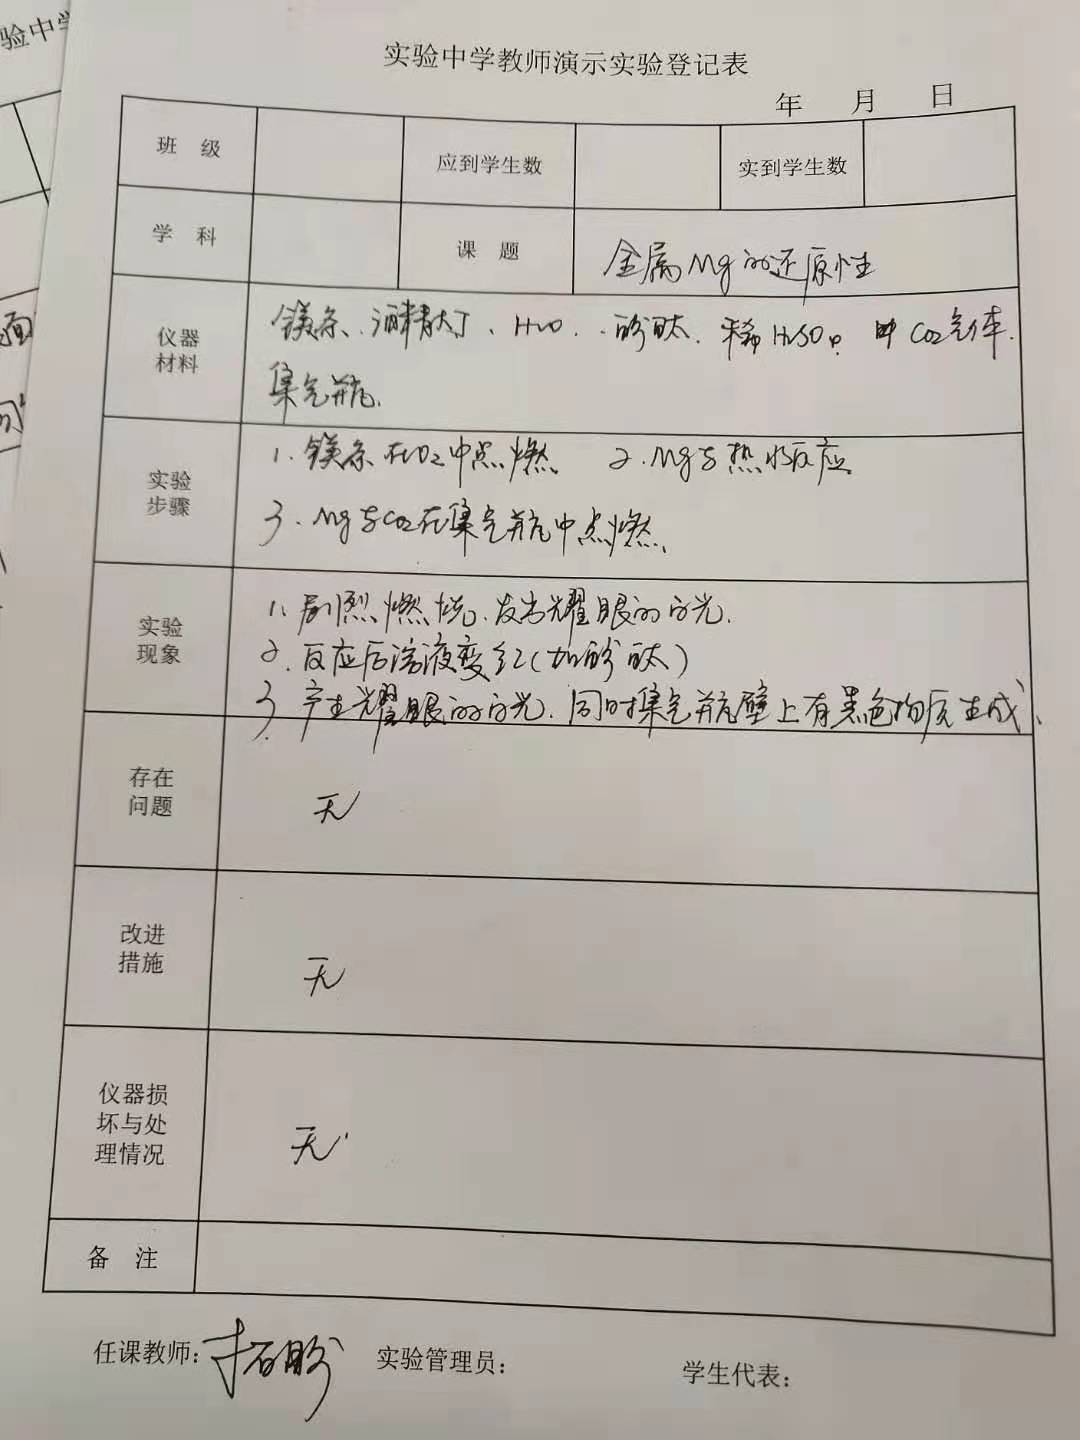 实验中学教师演示实验登记表
年 月 日
班 级 应到学生数 实到学生数
学 科 课 题 金属Mg的还原性
仪器材料 镁条、酒精灯、H2O、酚酞、稀H2SO4、CO2气体、
集气瓶、
实验步骤 1、镁条在O2中点燃、 2、Mg与热水反应
3、Mg与CO2在集气瓶中点燃、
实验现象 1、剧烈燃烧、发出耀眼的白光.
2、反应后溶液变红(加酚酞)
3、产生耀眼的白光、同时集气瓶壁上有黑色物质生成、
存在问题 无
改进措施 无
仪器损坏与处理情况 无
备 注
任课教师: 实验管理员: 学生代表: